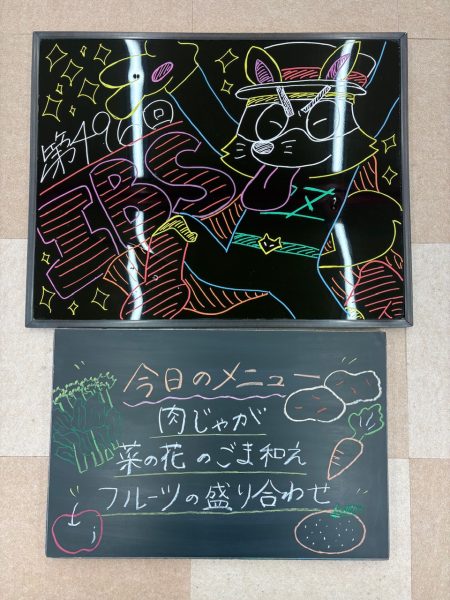 第496回
IBS
今日のメニュー
肉じゃが
菜の花のごま和え
フルーツの盛り合わせ